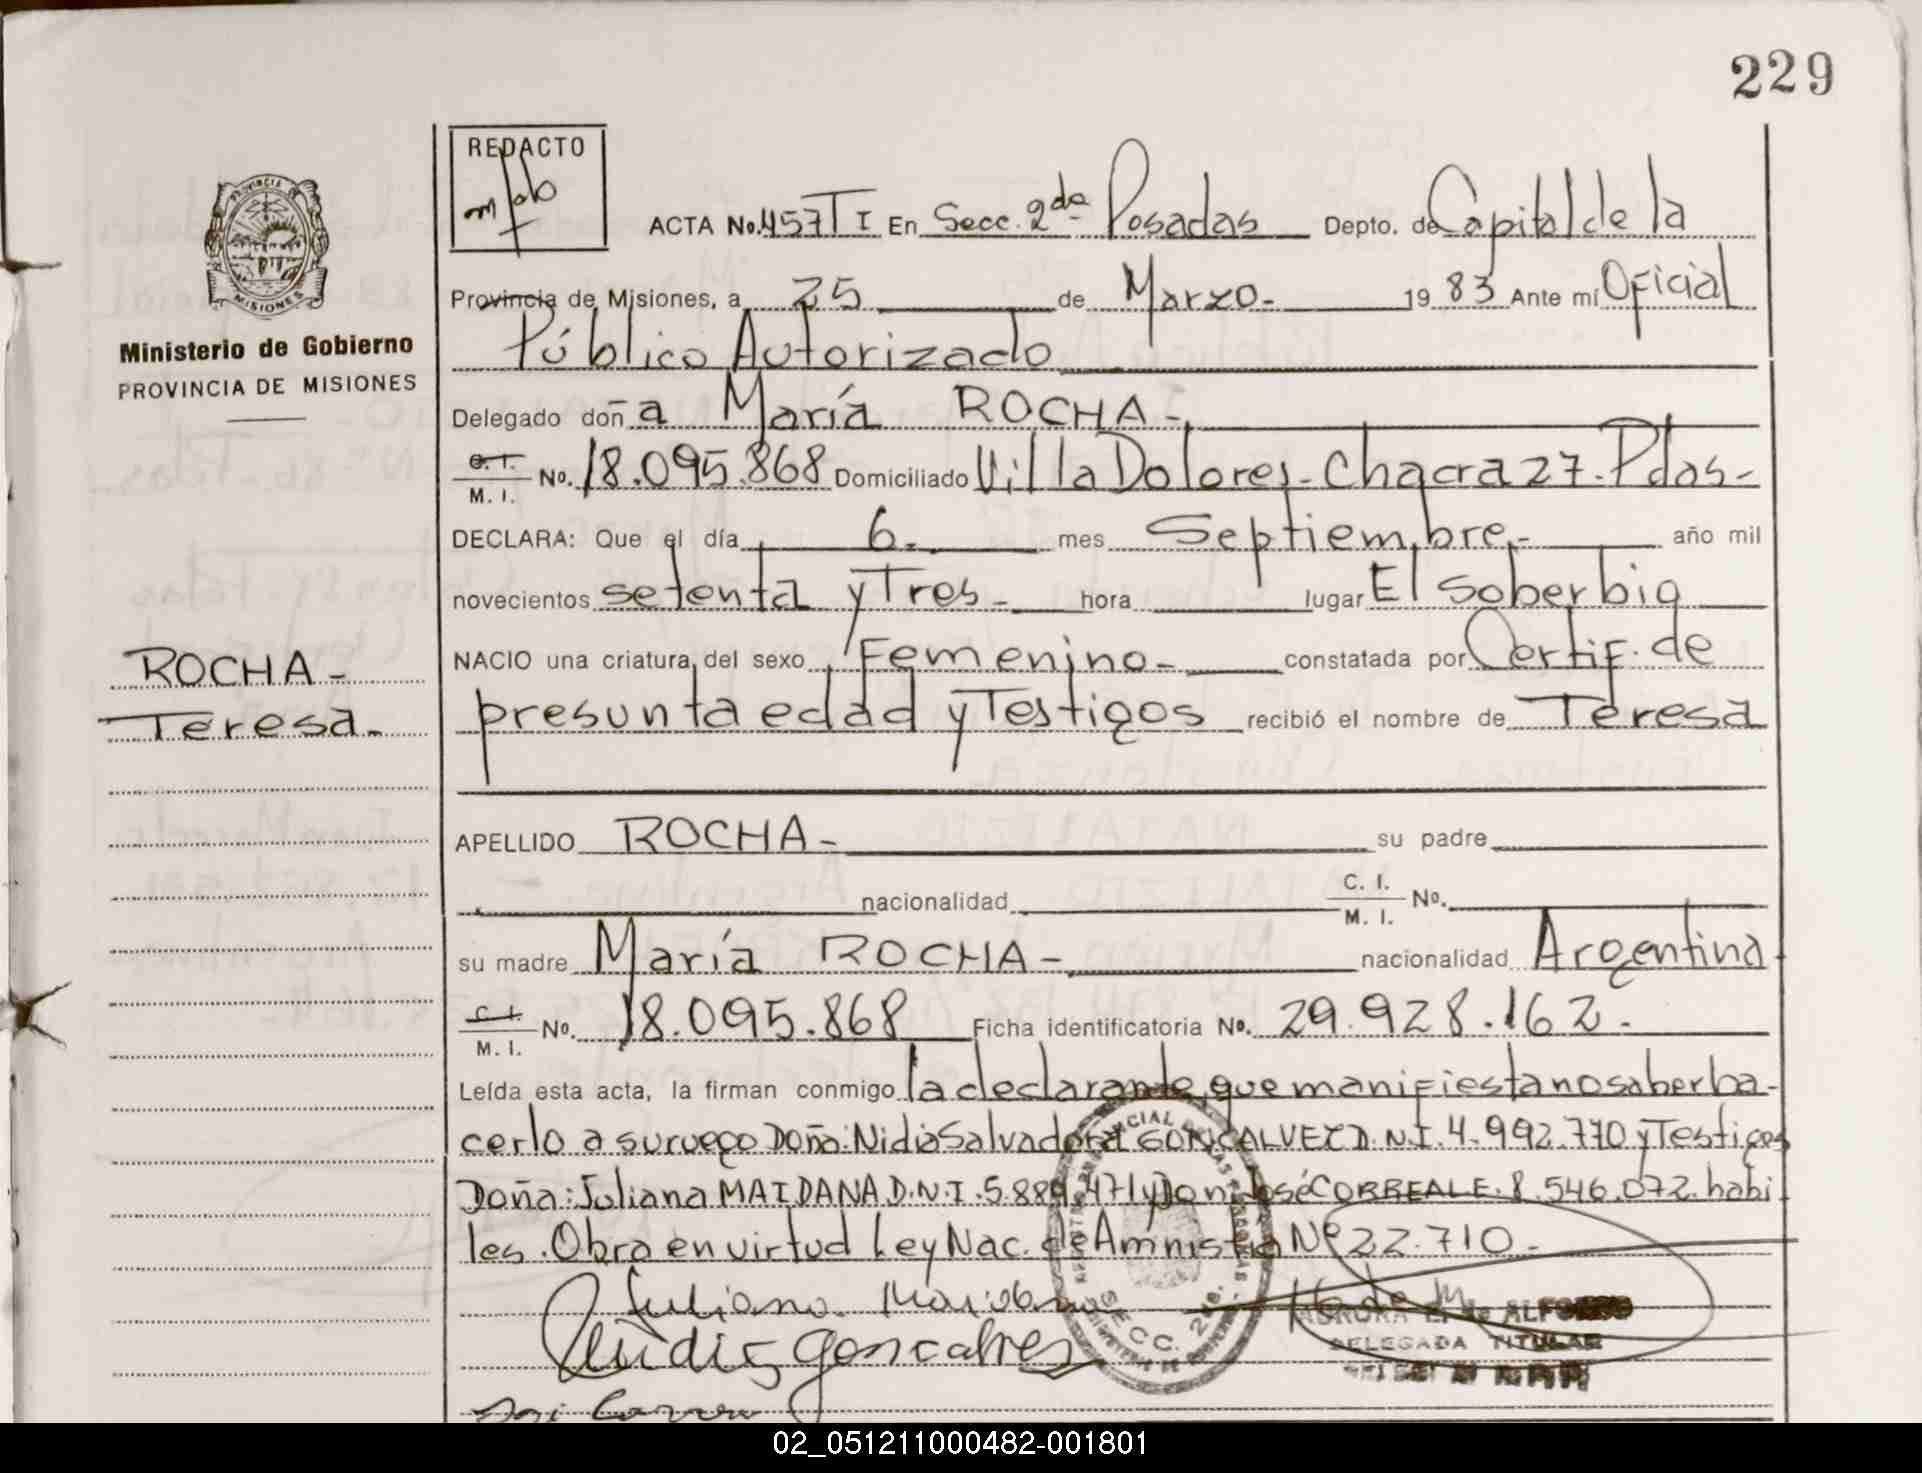 229
REDACTO
ACTA No. 457 T I En Secc. 2da Posadas Depto. de Capital de la
Provincia de Misiones, a 25 de Marzo - 19 83 Ante mí Oficial
Público Autorizado
Ministerio de Gobierno
PROVINCIA DE MISIONES
Delegado doña María ROCHA -
C. I.
M. I. No. 18.095.868 Domiciliado Villa Dolores - Chacra 27. Pdas -
DECLARA: Que el día 6. mes Septiembre - año mil
novecientos setenta y Tres - hora lugar El Soberbio
NACIO una criatura del sexo Femenino - constatada por Certif. de
presunta edad y Testigos recibió el nombre de Teresa
ROCHA -
Teresa -
APELLIDO ROCHA - su padre
nacionalidad C. I.
M. I. No.
su madre María ROCHA - nacionalidad Argentina
C. I.
M. I. No. 18.095.868 Ficha identificatoria No. 29.928.162 -
Leída esta acta, la firman conmigo la declarante, que manifiesta no saber ha-
cerlo a su ruego Doña: Nidia Salvadora GONCALVEZ D.N.I. 4.992.770 y Testigos
Doña: Juliana MAIDANA D.N.I. 5.889.471 y Don José CORREALE. 8.546.072. hábi
les. Obra en virtud Ley Nac. de Amnistía Nº 22.710 -
Juliana Maidana
Nidia Goncalves
SECC. 2da.
DELEGADA TITULAR
02_051211000482-001801